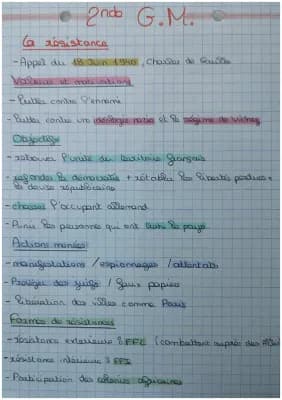 2nde G.M.
La résistance
- Appel du 18 Juin 1940, Charles de Gaulle
Valeurs et motivations
- Lutter contre l'ennemi
- Lutter contre une idéologie nazie et le régime de Vichy
Objectifs
- retrouver l'unité du territoire français
- refonder la démocratie + rétablir les libertés perdues +
la devise républicaine
- chasser l'occupant allemand
- Punir les personnes qui ont trahi le pays
Actions menées
- manifestations / espionnages / attentats
- Protéger des juifs / faux papiers
- Libération des villes comme Paris
Formes de résistances
- résistance extérieure : FFL (combattant auprès des
- résistance intérieure : FFI
- Participation des colonies africaines